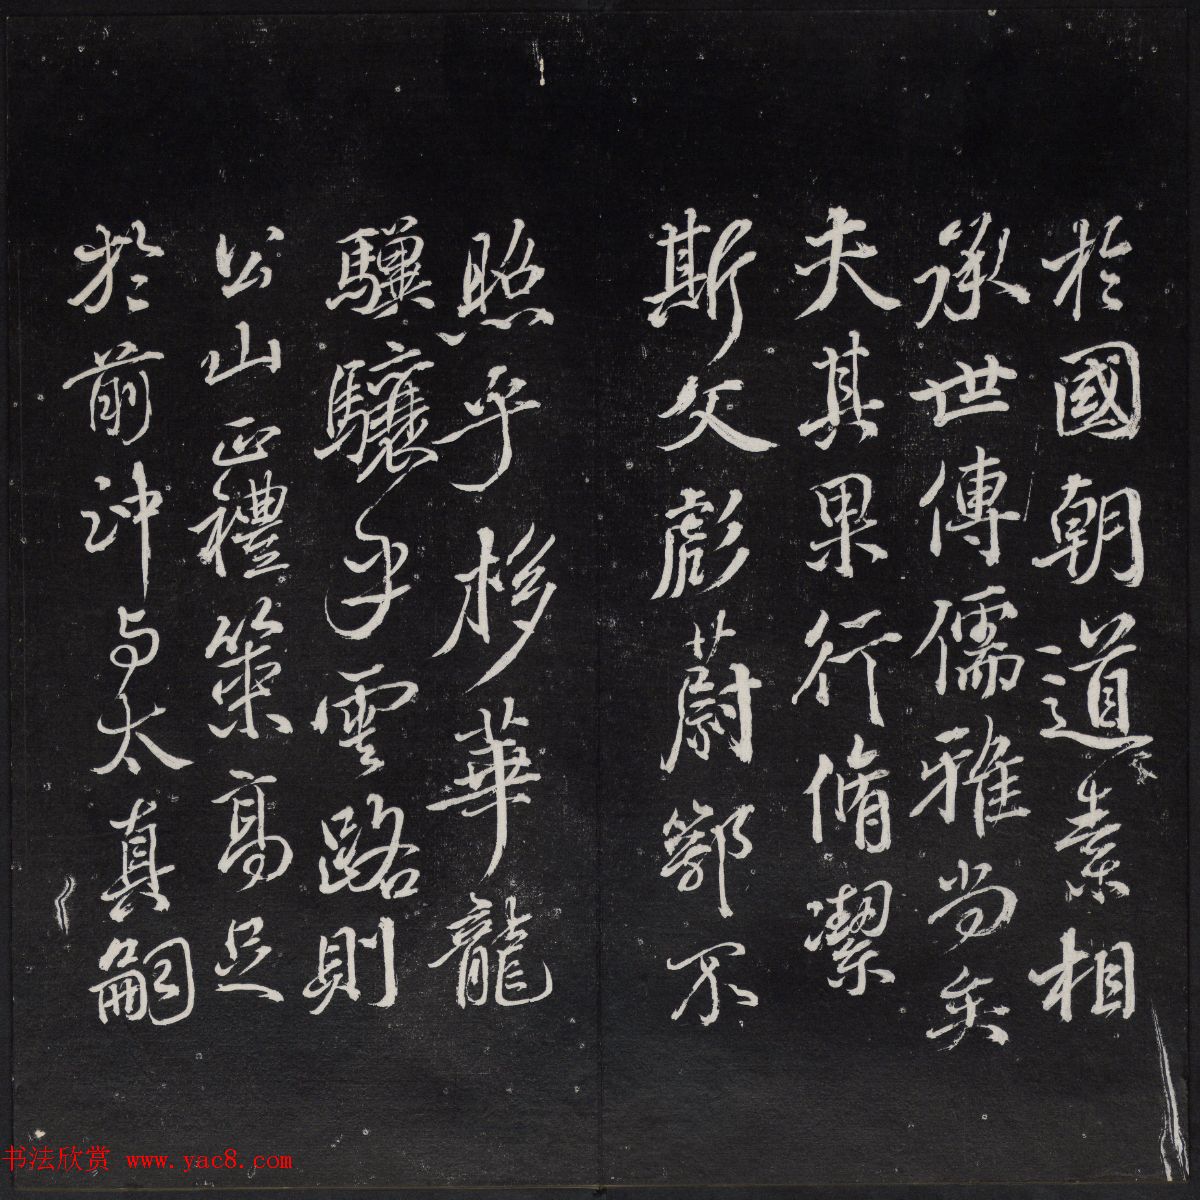 於國朝道素相
承世傳儒雅尚矣
夫其果行脩潔
斯文彪蔚鄂不
照乎移華龍
驥驤乎雲路則
公山正禮策高足
於前沖与太真嗣
书法欣赏 www.yac8.com